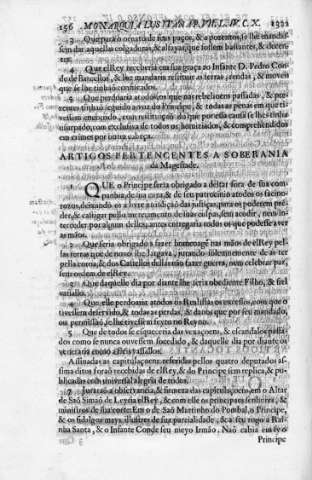 156 MONARQUIA LUSITANA P. VI. L. XIV. C. X. 1322
3 Que para o ornato de seus paços, & aposentos, se lhe mandas-
sem dar aquellas colgaduras, & alfayas, que fossem bastantes, & decen-
tes.
4 Que elRey receberia em sua graça ao Infante D. Pedro Con-
de de Barcellos, & lhe mandaria restituir as terras, rendas, & moveis
que se lhe tinhão confiscados.
5 Que perdoaria a todos os que nas rebelioens passadas, & pre-
sentes tinhão seguido a voz do Principe, & todas as penas em que ti-
vessem encorrido, com restituição do que por essa causa se lhes tinha
usurpado, com exclusiva de todos os homiziados, & comprehendidos
em crimes por outra culpa.
ARTIGOS PERTENCENTES A SOBERANIA
da Magestade.
1 QUE o Principe seria obrigado a deitar fora de sua com-
panhia, de sua casa, & de seu patrocinio a todos os facino-
rosos, deixando os à livre jurisdição das justiças, para os poderem pren-
der, & castigar pello merecimento de suas culpas, sem acodir, nem in-
terceder por algum delles, antes entregaria todos os que podesse aver
às mãos.
2 Que seria obrigado a fazer homenagẽ nas mãos de elRey pel-
las terras que de novo lhe largava, jurando solemnemente de as ter
pella coroa, & dos Castellos della não fazer guerra, nem celebrar paz,
sem ordem de elRey.
3 Que daquelle dia por diante lhe seria obediente Filho, & fiel
vassallo.
4 Que elle perdoaria a todos os Realistas os excessos, com que o
tivessem deservido, & todas as perdas, & danos que por seu mandado,
ou permissão, se lhe tivessem feyto no Reyno.
5 Que de todos se esquecerião das vexaçoens, & escandalos passa-
dos como se nunca ouvessem sucedido, & daquelle dia por diante os
trataria como a fieis vassallos.
Assinadas as capitulaçoens referidas pellos quatro deputados as-
sima ditos forão recebidas de elRey, & do Principe sem replica, & pu-
blicadas com universal alegria de todos.
7 Jurarão a observancia, & firmeza das capitulaçoens em o Altar
de São Simão de Leyria elRey, & com elle os principaes senhores, &
ministros de sua corte. Em o de São Martinho do Pombal, o Principe,
& os fidalgos mays illustres de sua parcialidade, & a seu rogo a Ray-
nha Santa, & o Infante Conde seu meyo Irmão. Não cabia em syo
Principe